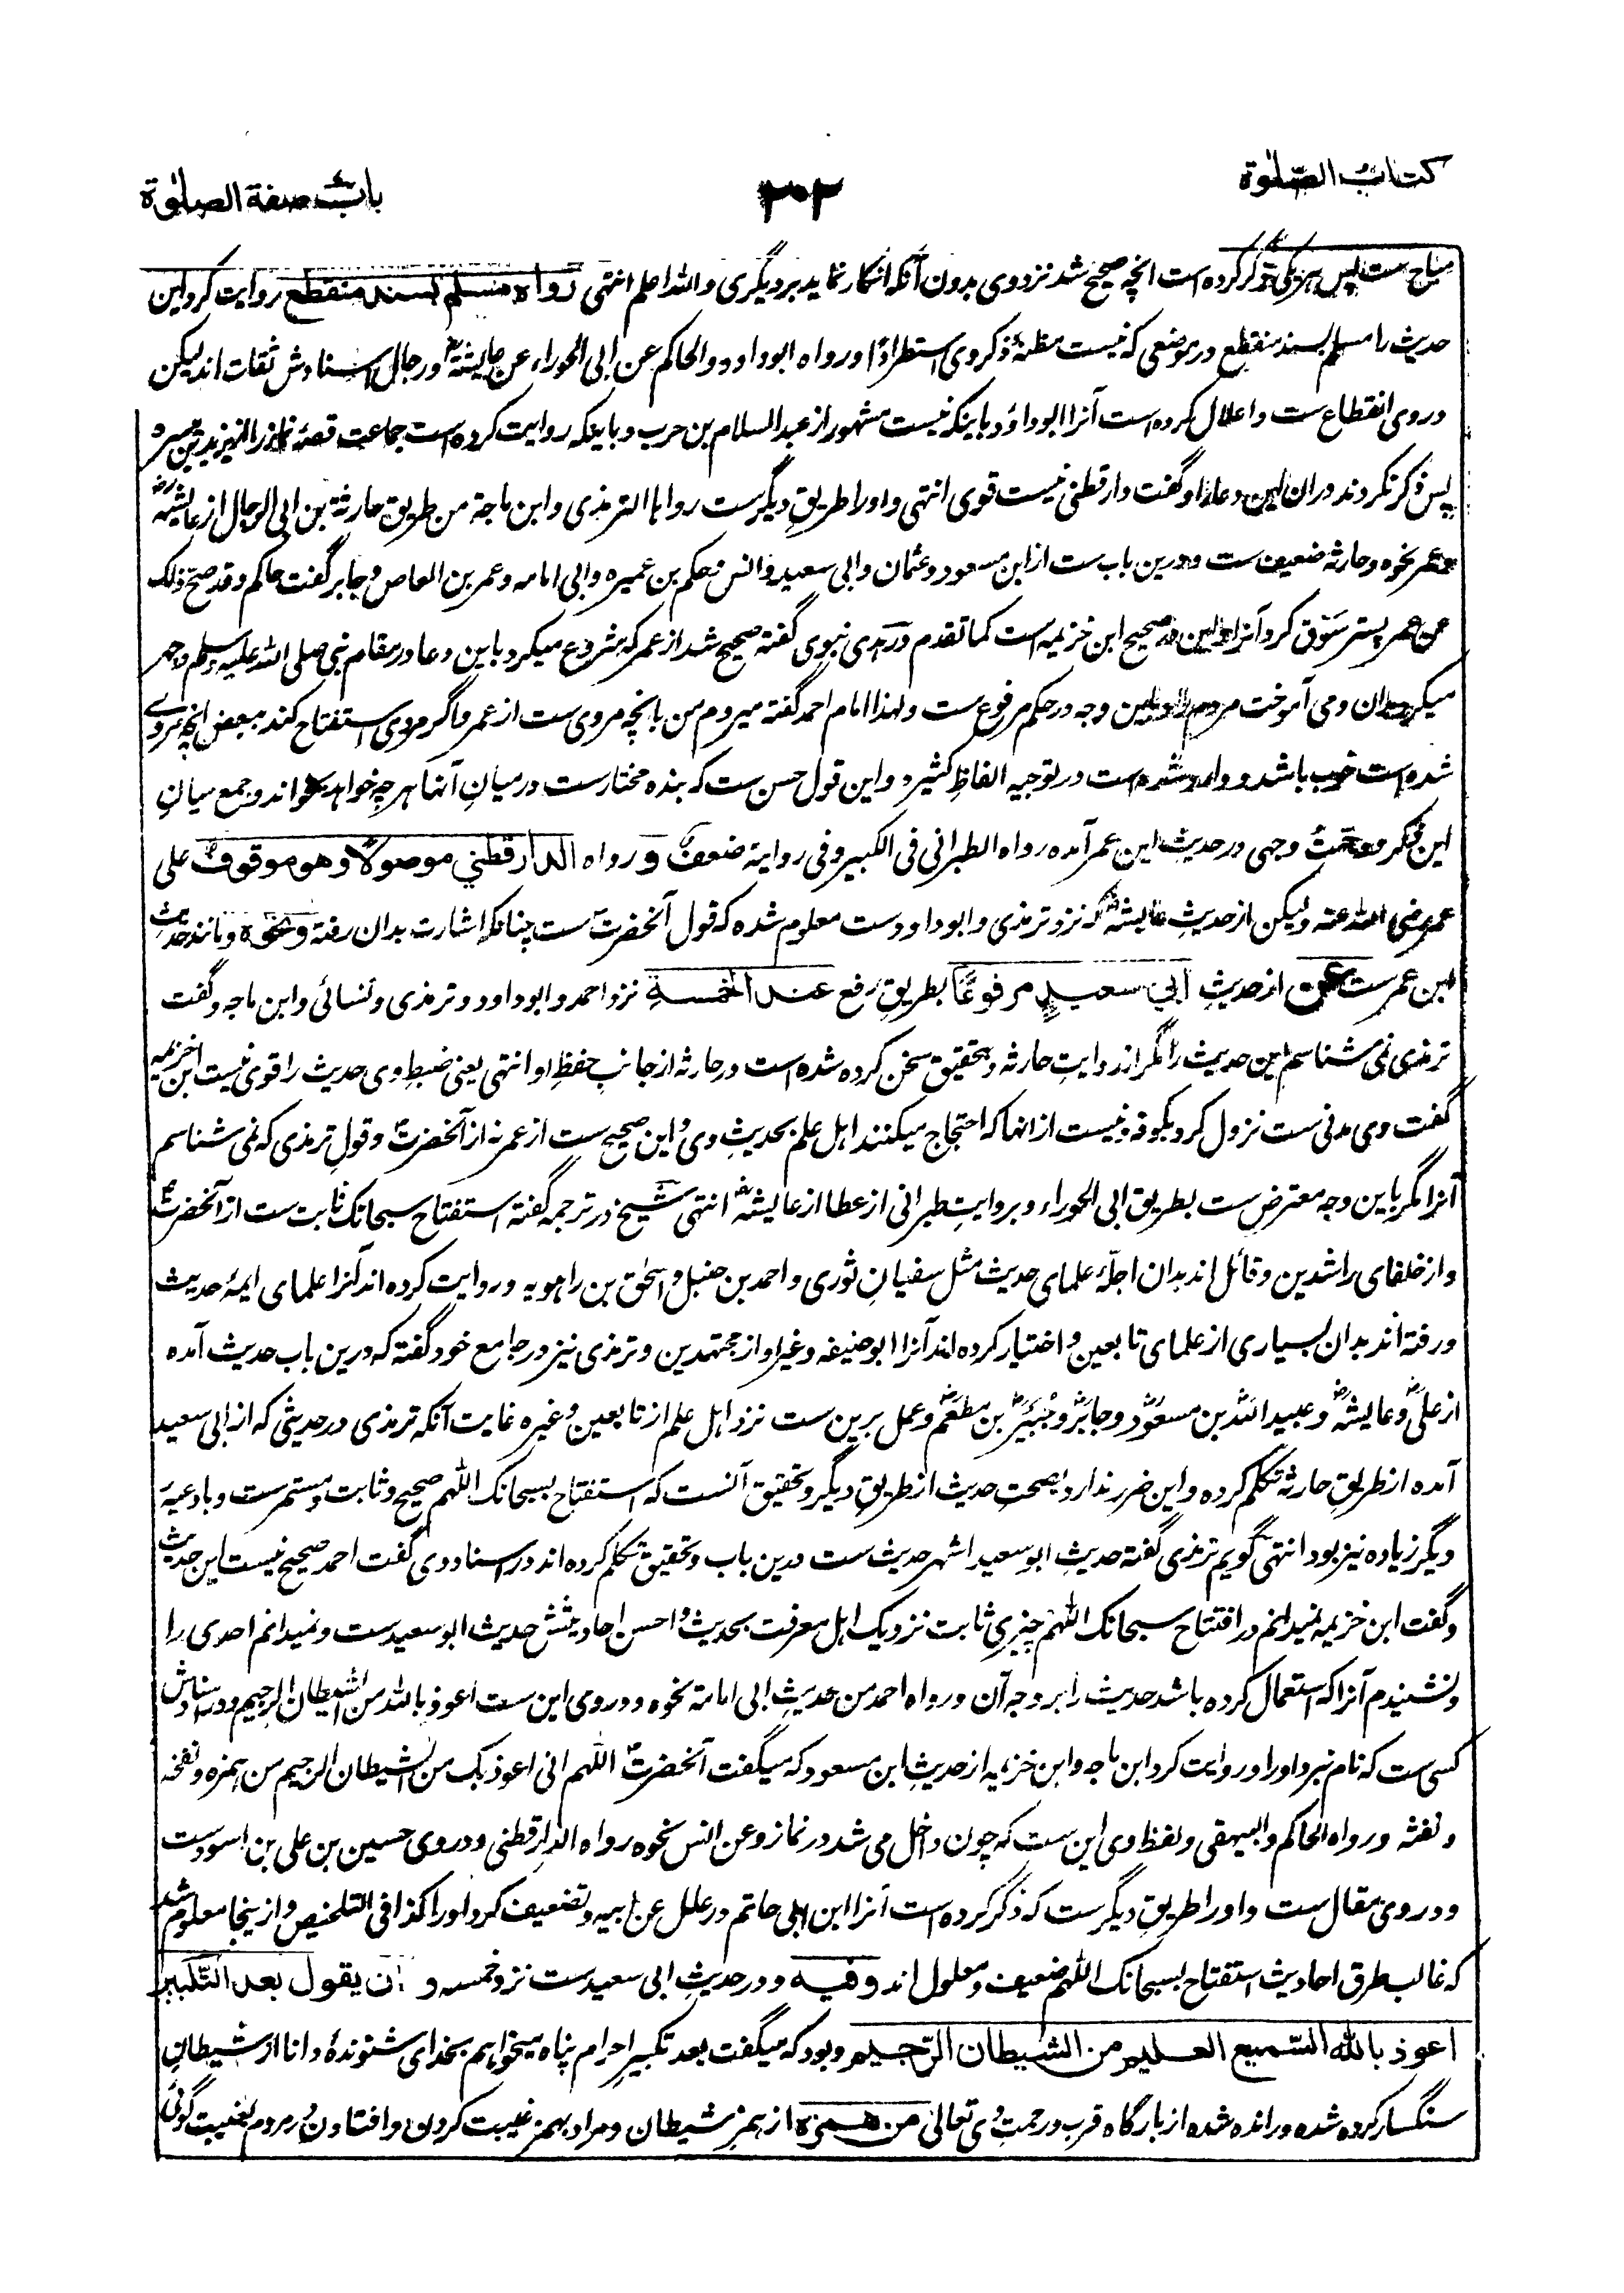 کتاب الصّلوٰة
۳۰۲
باب صفة الصلوٰة
مباح ست پس هر یکی ذکر کرده است انچه صحیح شد نزد وی بدون آنکه انکار نماید بر دیگری والله اعلم انتهی رواه مسلم بسند منقطع روایت کرد این
حدیث را مسلم بسند منقطع در موضعی که نیست مظنۀ ذکر وی استطرادًا و رواه ابوداود والحاکم عن ابی الجوراء عن عایشة و رجال اسنادش ثقات اند لیکن
در وی انقطاع ست و اعلال کرده است آنرا ابوداؤد باینکه نیست مشهور از عبدالسلام بن حرب و باینکه روایت کرده است جماعت قصۀ نماز را از بدیل بن میسره
پس ذکر نکردند در ان این دعا را و گفت دارقطنی نیست قوی انتهی و او را طریقِ دیگرست رواها الترمذی و ابن ماجة من طریق حارثة بن ابی الرجال از عایشه
نحوه و حارثه ضعیف ست و درین باب ست از ابن مسعود و عثمان و ابی سعید و انس و حکم بن عمیره و ابی امامه و عمر بن العاص و جابر گفت حاکم و قد صحّ ذلک
عن عمر پستر سَوق کرد آنرا و این در صحیح ابن خزیمه است کما تقدم در هدی نبوی گفته صحیح شد از عمر که شروع میکرد باین دعا در مقام نبی صلی الله علیه وسلم و جهر
میکرد بدان و می آموخت مردم را و باین وجه در حکم مرفوع ست و لهذا امام احمد گفته میروم من بانچه مروی ست از عمر و اگر مردی استفتاح کند ببعض انچه مروی
شده است خوب باشد و وارد شده است در توجیه الفاظِ کثیره و این قول حسن ست که بنده مختارست در میانِ آنها هر چه خواهد بخواند و جمع میانِ
این ذکر و وجّهتُ وجهی در حدیث ابن عمر آمده رواه الطبرانی فی الکبیر و فی روایة ضعف و رواه الدارقطني موصولًا وهو موقوف علی
عمر رضی الله عنه ولیکن از حدیثِ عایشه که نزد ترمذی و ابوداود ست معلوم شده که قول آنحضرت ست چنانکه اشارت بدان رفته ونحوه و مانند حدیث
ابن عمر ست عن از حدیثِ ابي سعیدٍ مرفوعًا بطریقِ رفع عند الخمسة نزد احمد و ابوداود و ترمذی و نسائی و ابن ماجه و گفت
ترمذی نمی شناسم این حدیث را مگر از روایتِ حارثه و بتحقیق سخن کرده شده است در حارثه از جانبِ حفظِ او انتهی یعنی ضبطِ وی حدیث را قوی نیست ابن خزیمه
گفت وی مدنی ست نزول کرد بکوفه و نیست از انها که احتجاج میکنند اهل علم بحدیثِ وی و این صحیح ست از عمر نه از آنحضرت و قولِ ترمذی که نمی شناسم
آنرا مگر باین وجه معترض ست بطریق ابی الجوراء و بروایتِ طبرانی از عطا از عایشه انتهی شیخ در ترجمه گفته استفتاح سبحانک ثابت ست از آنحضرت
و از خلفای راشدین و قائل اند بدان اجلّه علمای حدیث مثل سفیانِ ثوری و احمد بن حنبل و اسحٰق بن راهویه و روایت کرده اند آنرا علمای ایمۀ حدیث
و رفته اند بدان بسیاری از علمای تابعین و اختیار کرده اند آنرا ابوحنیفه و غیر او از مجتهدین و ترمذی نیز در جامع خود گفته که درین باب حدیث آمده
از علی و عایشه و عبیدالله بن مسعود و جابر و جبیر بن مطعم و عمل برین ست نزد اهل علم از تابعین و غیره غایت آنکه ترمذی در حدیثی که از ابی سعید
آمده از طریقِ حارثه تکلم کرده و این ضرر ندارد بصحتِ حدیث از طریقِ دیگر و تحقیق آنست که استفتاح بسبحانک اللّهم صحیح و ثابت و مستمرست و با دعیۀ
دیگر زیاده نیز بود انتهی گویم ترمذی گفته حدیثِ ابوسعید اشهر حدیث ست درین باب و تحقیق تکلم کرده اند در اسناد وی گفت احمد صحیح نیست این حدیث
و گفت ابن خزیمه نمیدانم در افتتاح سبحانک اللّهم چیزی ثابت نزدیک اهل معرفت بحدیث و احسن احادیثش حدیث ابوسعیدست و نمیدانم احدی را
و نشنیدم آنرا که استعمال کرده باشد حدیث را بر وجه آن و رواه احمد من حدیثِ ابی امامة نحوه و در وی این ست اعوذ بالله من الشیطان الرجیم و در اسنادش
کسی ست که نام نبرد او را و روایت کرد ابن ماجه و ابن خزیمه از حدیثِ ابن مسعود که میگفت آنحضرت اللّهم انی اعوذ بک من الشیطان الرجیم من همزه و نفخه
و نفثه و رواه الحاکم والبیهقی و لفظ وی این ست که چون داخل می شد در نماز و عن انس نحوه رواه الدارقطنی و در وی حسین بن علی بن اسودست
و در وی مقال ست و او را طریقِ دیگرست که ذکر کرده است آنرا ابن ابی حاتم در علل عن ابیه و تضعیف کرد او را کذا فی التلخیص و از ینجا معلوم شد
که غالب طرق احادیث استفتاح بسبحانک اللّهم ضعیف و معلول اند وفیه و در حدیثِ ابی سعیدست نزد خمسه و ان یقول بعد التّکبیر
اعوذ بالله السّمیع العلیم من الشیطان الرّجیم و بود که میگفت بعد تکبیرِ احرام پناه میخواهم بخدای شنوندۀ دانا از شیطانِ
سنگسار کرده شده و رانده شده از بارگاه قرب و رحمتِ وی تعالیٰ من همزه از همزِ شیطان و مراد بهمز غیبت کردن و افتادن در مردم بغیبت گوئی